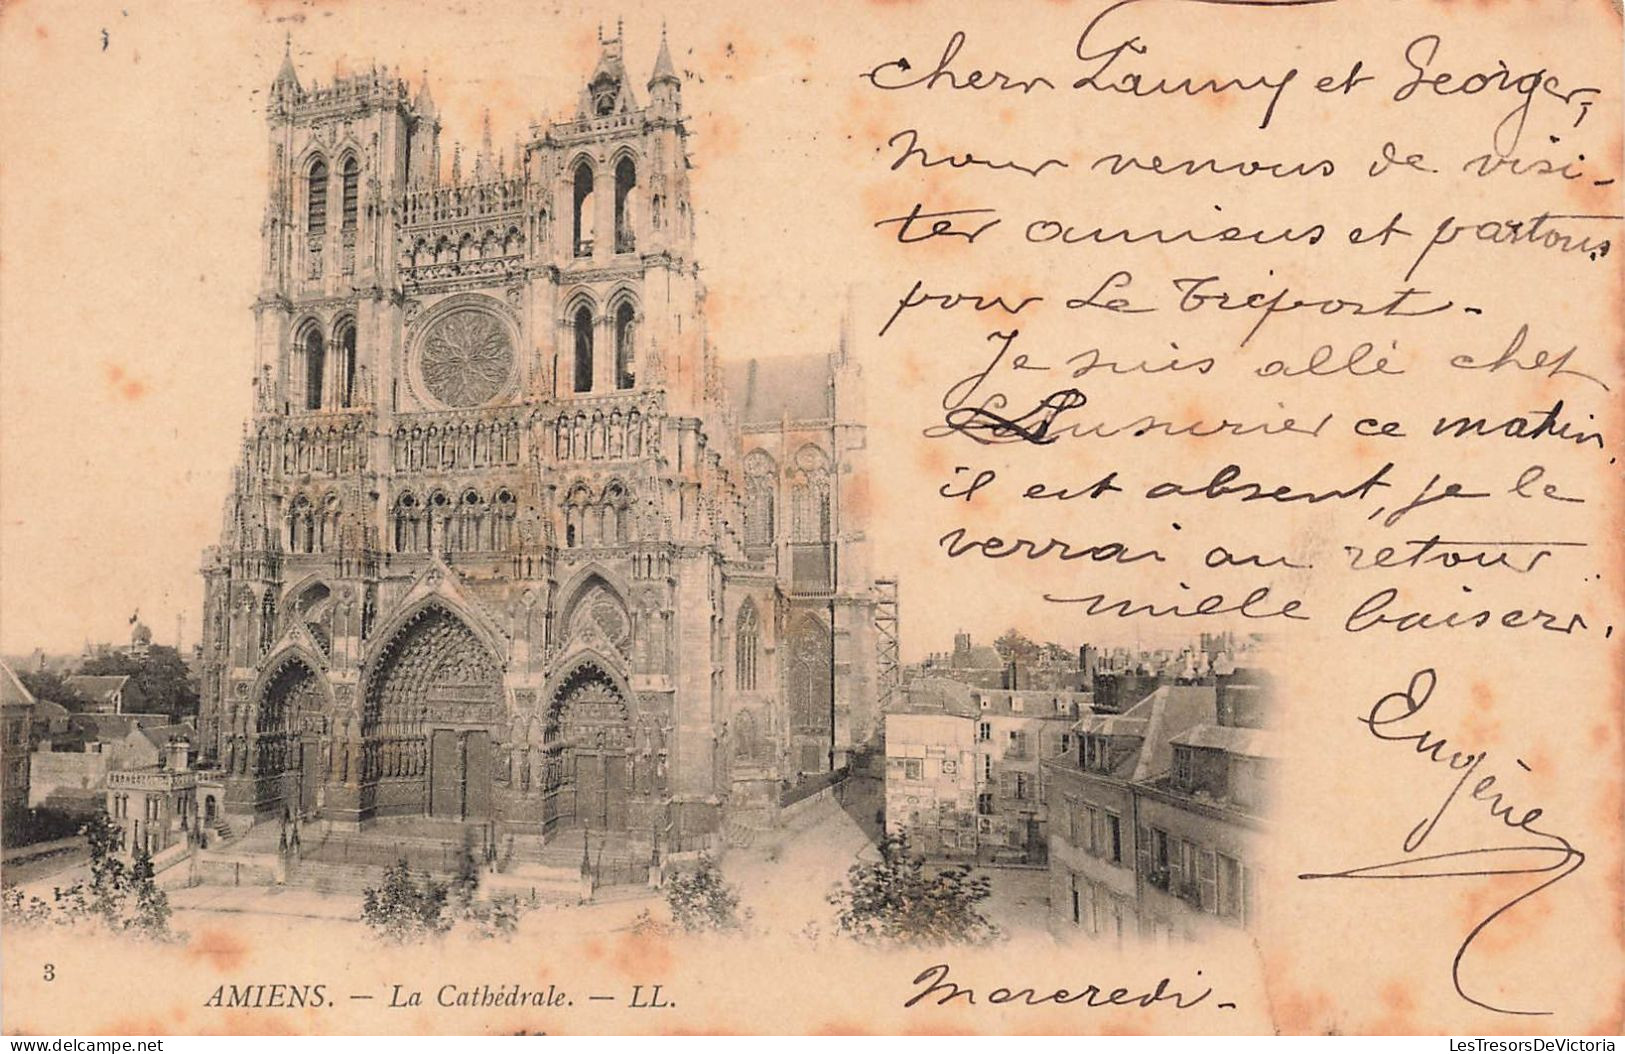 chers Fanny et Georges,
nous venons de visi-
ter amiens et partons
pour Le Tréport -
Je suis allé chez
ce matin,
il est absent, je le
verrai au retour
mille baisers.
Eugène
Mercredi -
3
AMIENS. — La Cathédrale. — LL.
LesTresorsDeVictoria
delcampe.net